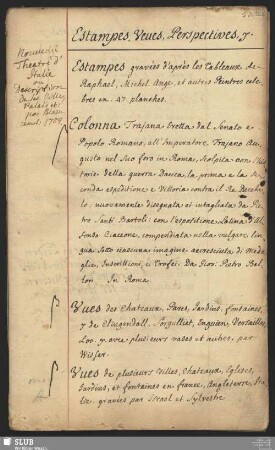 Estampes, Veues, Perspectives, &.
Nouveau
Theatre d'
Italie
ou
Description
de ses Villes,
Palais &c
par Blaeu
amst. 1704
Estampes gravées d'après les Tableaux de
Raphael, Michel Ange, et autres Peintres cele
bres en 47 planches.
Colonna Trajana eretta dal Senato e
Popolo Romano, all' Imperatore Trajano Au
gusto nel suo foro in Roma, Scolpita con l'his
torie della guerra Dacica, la prima e la se
conda espeditione e Vittoria contro il Re Deceba
lo, nuovamente disegnata et intagliata da Pie
tro Santi Bartoli con l'espositione Latina d'Al
fonso Ciaccone, compendiata nella vulgare lin
gua sotto ciascuna imagine accresciuta di Meda
glie, Inscrittioni, e Trofei. Da Gior. Pietro Bel
lori In Roma
Vues des Chateaux, Parcs, Jardins, fontaines,
& de Clingendall, Sorgvliet, Enguien, Versailles
Loo & avec plusieurs vases et autres, par
Visser.
Vues de plusieurs Villes, Chateaux, Eglises,
Jardins, et fontaines en france, Angleterre, Ita
lie gravées par Israel et Sylvestre
SLUB
Wir führen Wissen.